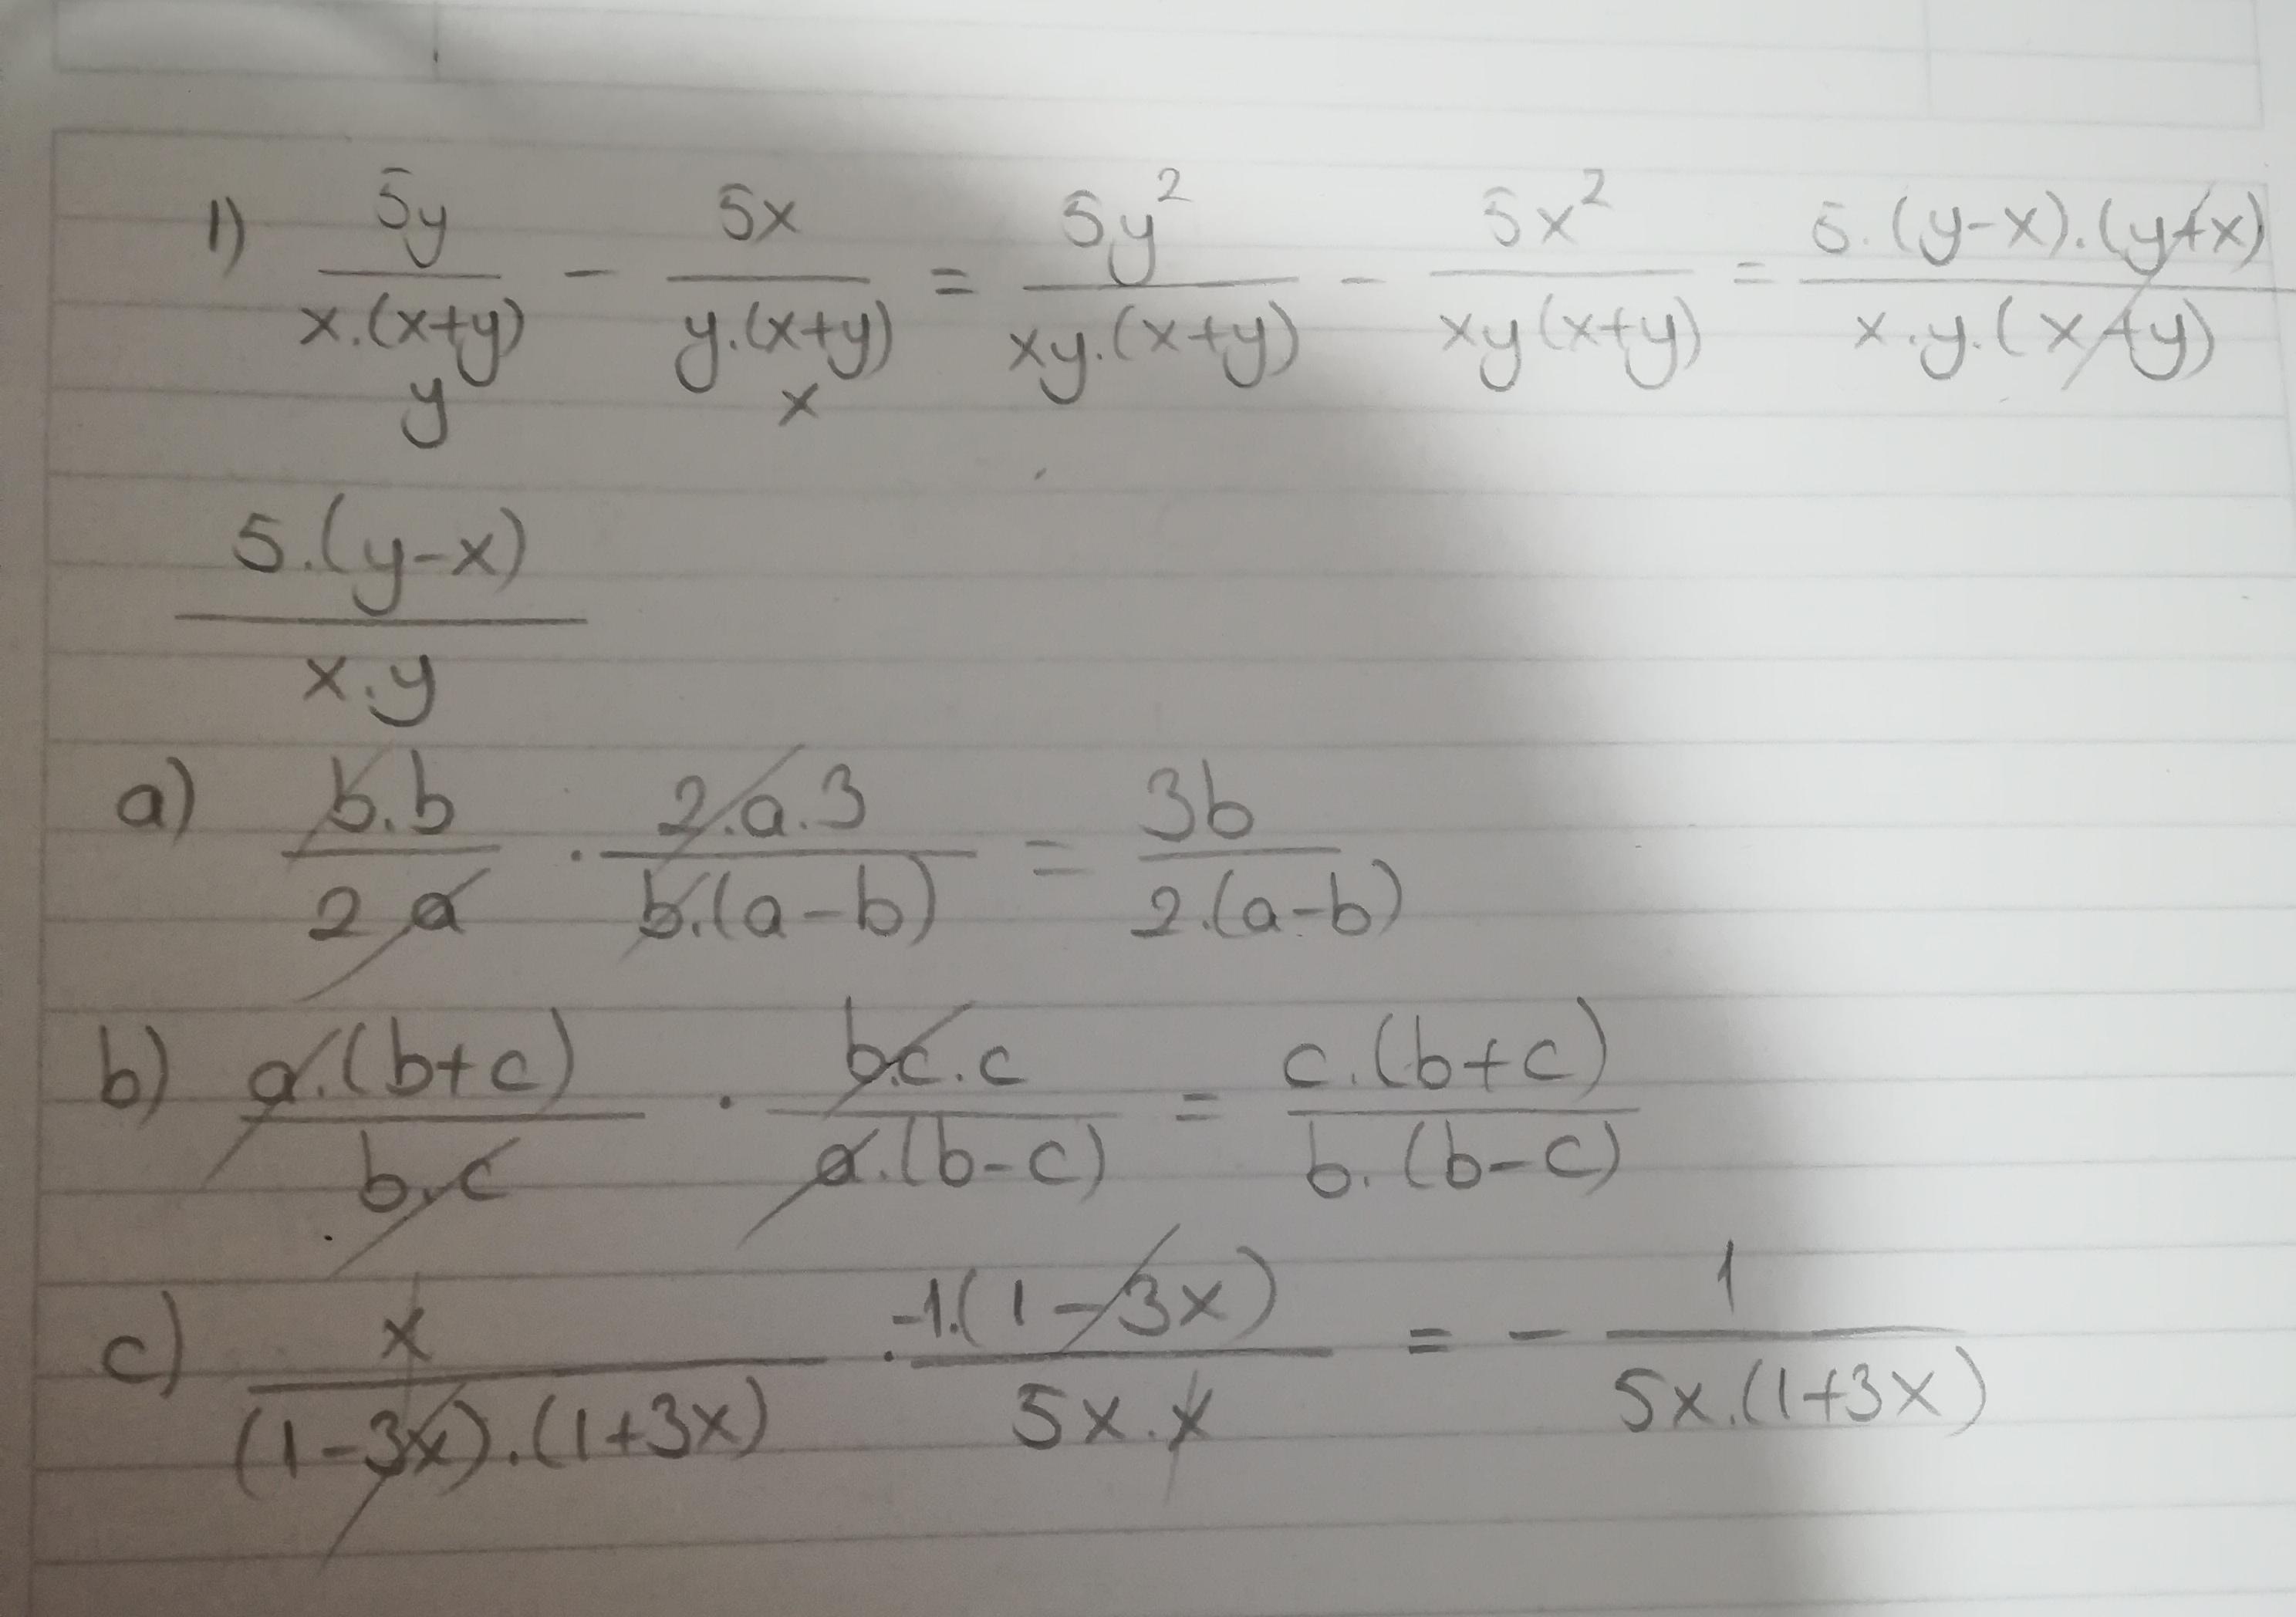 1) 5y/(x.(x+y)) - 5x/(y.(x+y)) = 5y²/(xy.(x+y)) - 5x²/(xy(x+y)) = 5.(y-x).(y+x)/(x.y.(x+y))
y x
5.(y-x)/(x.y)
a) b.b/(2a) . 2.a.3/(b.(a-b)) = 3b/(2.(a-b))
b) a.(b+c)/(b.c) . b.c.c/(a.(b-c)) = c.(b+c)/(b.(b-c))
c) x/((1-3x).(1+3x)) . -1.(1-3x)/(5x.x) = - 1/(5x.(1+3x))